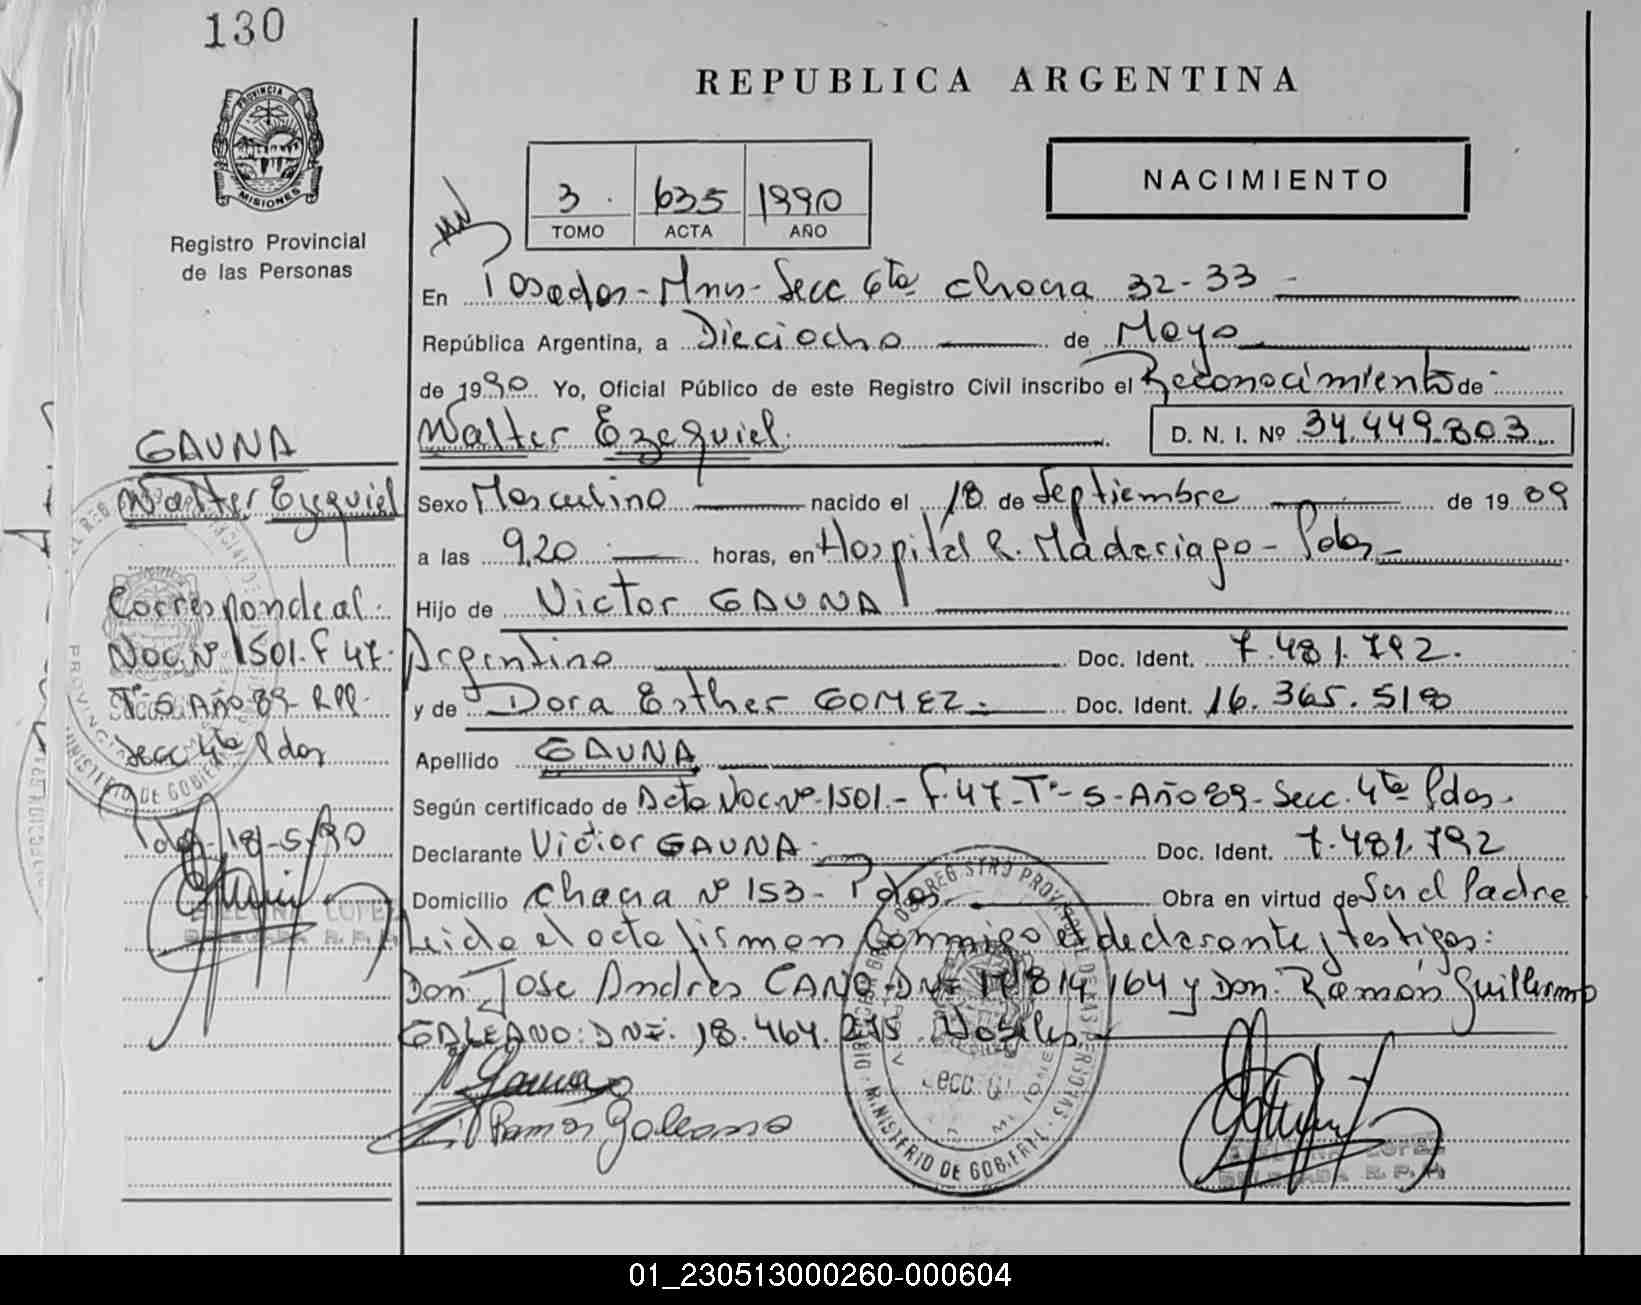 130
REPUBLICA ARGENTINA
PROVINCIA
MISIONES
Registro Provincial
de las Personas
NACIMIENTO
3 635 1990
TOMO ACTA AÑO
En Posadas - Mnes - Secc 6ta chacra 32-33
República Argentina, a Dieciocho de Mayo
de 1990. Yo, Oficial Público de este Registro Civil inscribo el Reconocimiento de
Walter Ezequiel. D. N. I. Nº 34.449.803
Sexo Masculino nacido el 18 de Septiembre de 1989
a las 9,20 horas, en Hospital R. Madariaga - Pdas
Hijo de Victor GAUNA
Argentino Doc. Ident. 7.481.792.
y de Dora Esther GOMEZ. Doc. Ident. 16.365.518
Apellido GAUNA
Según certificado de Acta Nac. Nº 1501 - F. 47 - Tº - 5 - Año 89 - Secc. 4ta Pdas.
Declarante Victor GAUNA Doc. Ident. 7.481.792
Domicilio Chacra Nº 153 - Pdas Obra en virtud de Ser el Padre
Leida el acta firman Conmigo el declarante y testigos:
Don: Jose Andrés CANO DNI 17.814.164 y Don: Ramón Guillermo
GALEANO: DNI: 18.464.215. Habiles
Ramon Galeano
GAUNA
Walter Ezequiel
Correspondeal:
Nac. Nº 1501. F 47.
Tº 5 Año 89 RPP.
Secc 4ta Pdas
Pdas. 18-5-90
LOPEZ
DELEGADA R.P.P.
MINISTERIO DE GOBIERNO
01_230513000260-000604